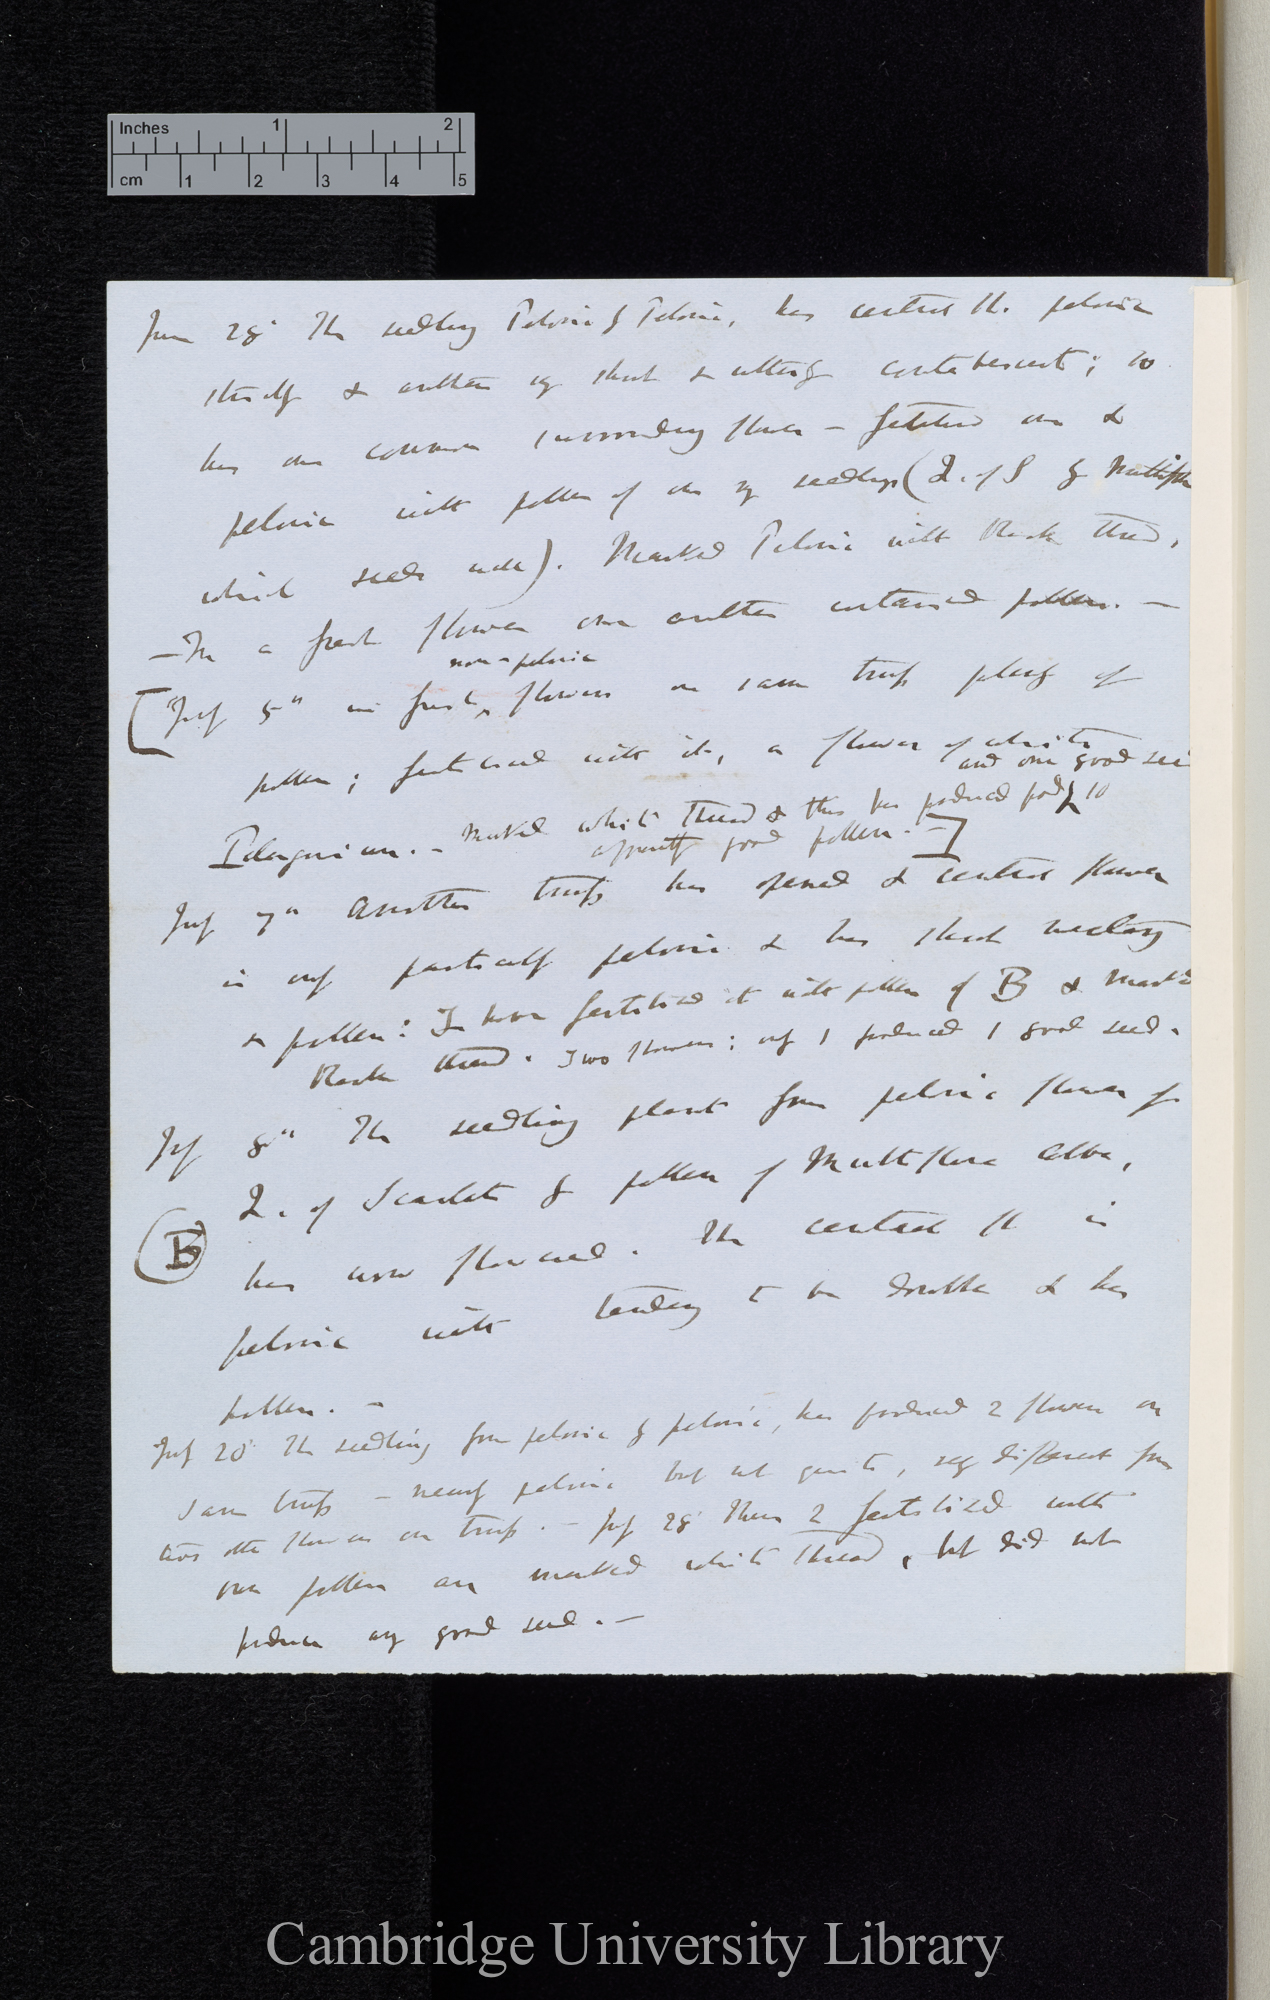 Inches 1 2
cm 1 2 3 4 5
June 28th The seedling Peloric by Peloric, has central fl. peloric
& anthers very short & utterly contabescent; so
has one common surrounding flower — fertilised one &
peloric with pollen of one of seedlings (Q. of S by Multiflora
which seeds well). Marked Peloric with black thread,
— In a fresh flower one anther contained pollen. —
non-peloric
[July 5th in fresh flowers on same truss plenty of
pollen; fertilised with it, a flower of white
and one good seed
Pelargonium. — marked white thread & this has produced pod by
apparently good pollen. —]
July 7th Another truss has opened & central flower
is only partially peloric & has short nectary
& pollen: I have fertilised it with pollen of B & marked
black thread. Two flowers: only 1 produced 1 good seed.
July 8th The seedling plant from peloric flower of
Q. of Scarlet by pollen of Multiflora alba,
(B)
has now flowered. The central fl is
peloric with tendency to be double & has
pollen. —
July 20th The seedling from peloric by peloric, has produced 2 flowers on
same truss — nearly peloric but not quite, very different from
other flowers on truss. — July 28 These 2 fertilised with
own pollen are marked white thread, but did not
produce any good seed. —
Cambridge University Library